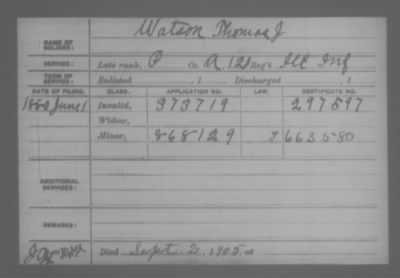 Watson Thomas J
NAME OF SOLDIER:
SERVICE: Late rank, P Co. A, 121 Reg't Ill Inf
TERM OF SERVICE: Enlisted , 1 Discharged , 1
DATE OF FILING. CLASS. APPLICATION NO. LAW. CERTIFICATE NO.
1880 June 1 Invalid, 373719 297597
Widow,
Minor, 868129 J 663580
ADDITIONAL SERVICES:
REMARKS:
Died Sept. 2, 1905, at